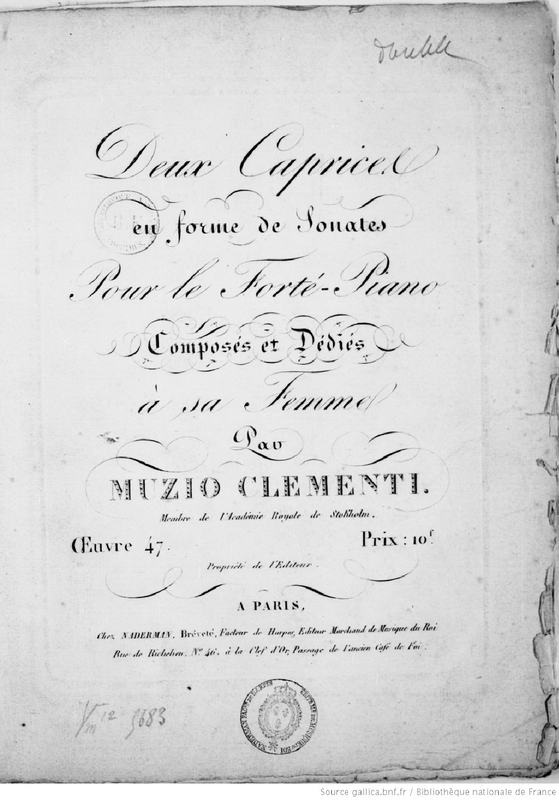 double
Deux Caprices
en forme de Sonates
Pour le Forté-Piano
Composés et Dédiés
à sa Femme
Par
MUZIO CLEMENTI.
Membre de l'Académie Royale de Stokholm.
Œuvre 47. Prix : 10f
Propriété de l'Editeur.
A PARIS,
Chez NADERMAN, Bréveté, Facteur de Harpes, Editeur Marchand de Musique du Roi
Rue de Richelieu, No 46, à la Clef d'Or, Passage de l'ancien Café de Foi.
Vm 12 5683
Source gallica.bnf.fr / Bibliothèque nationale de France